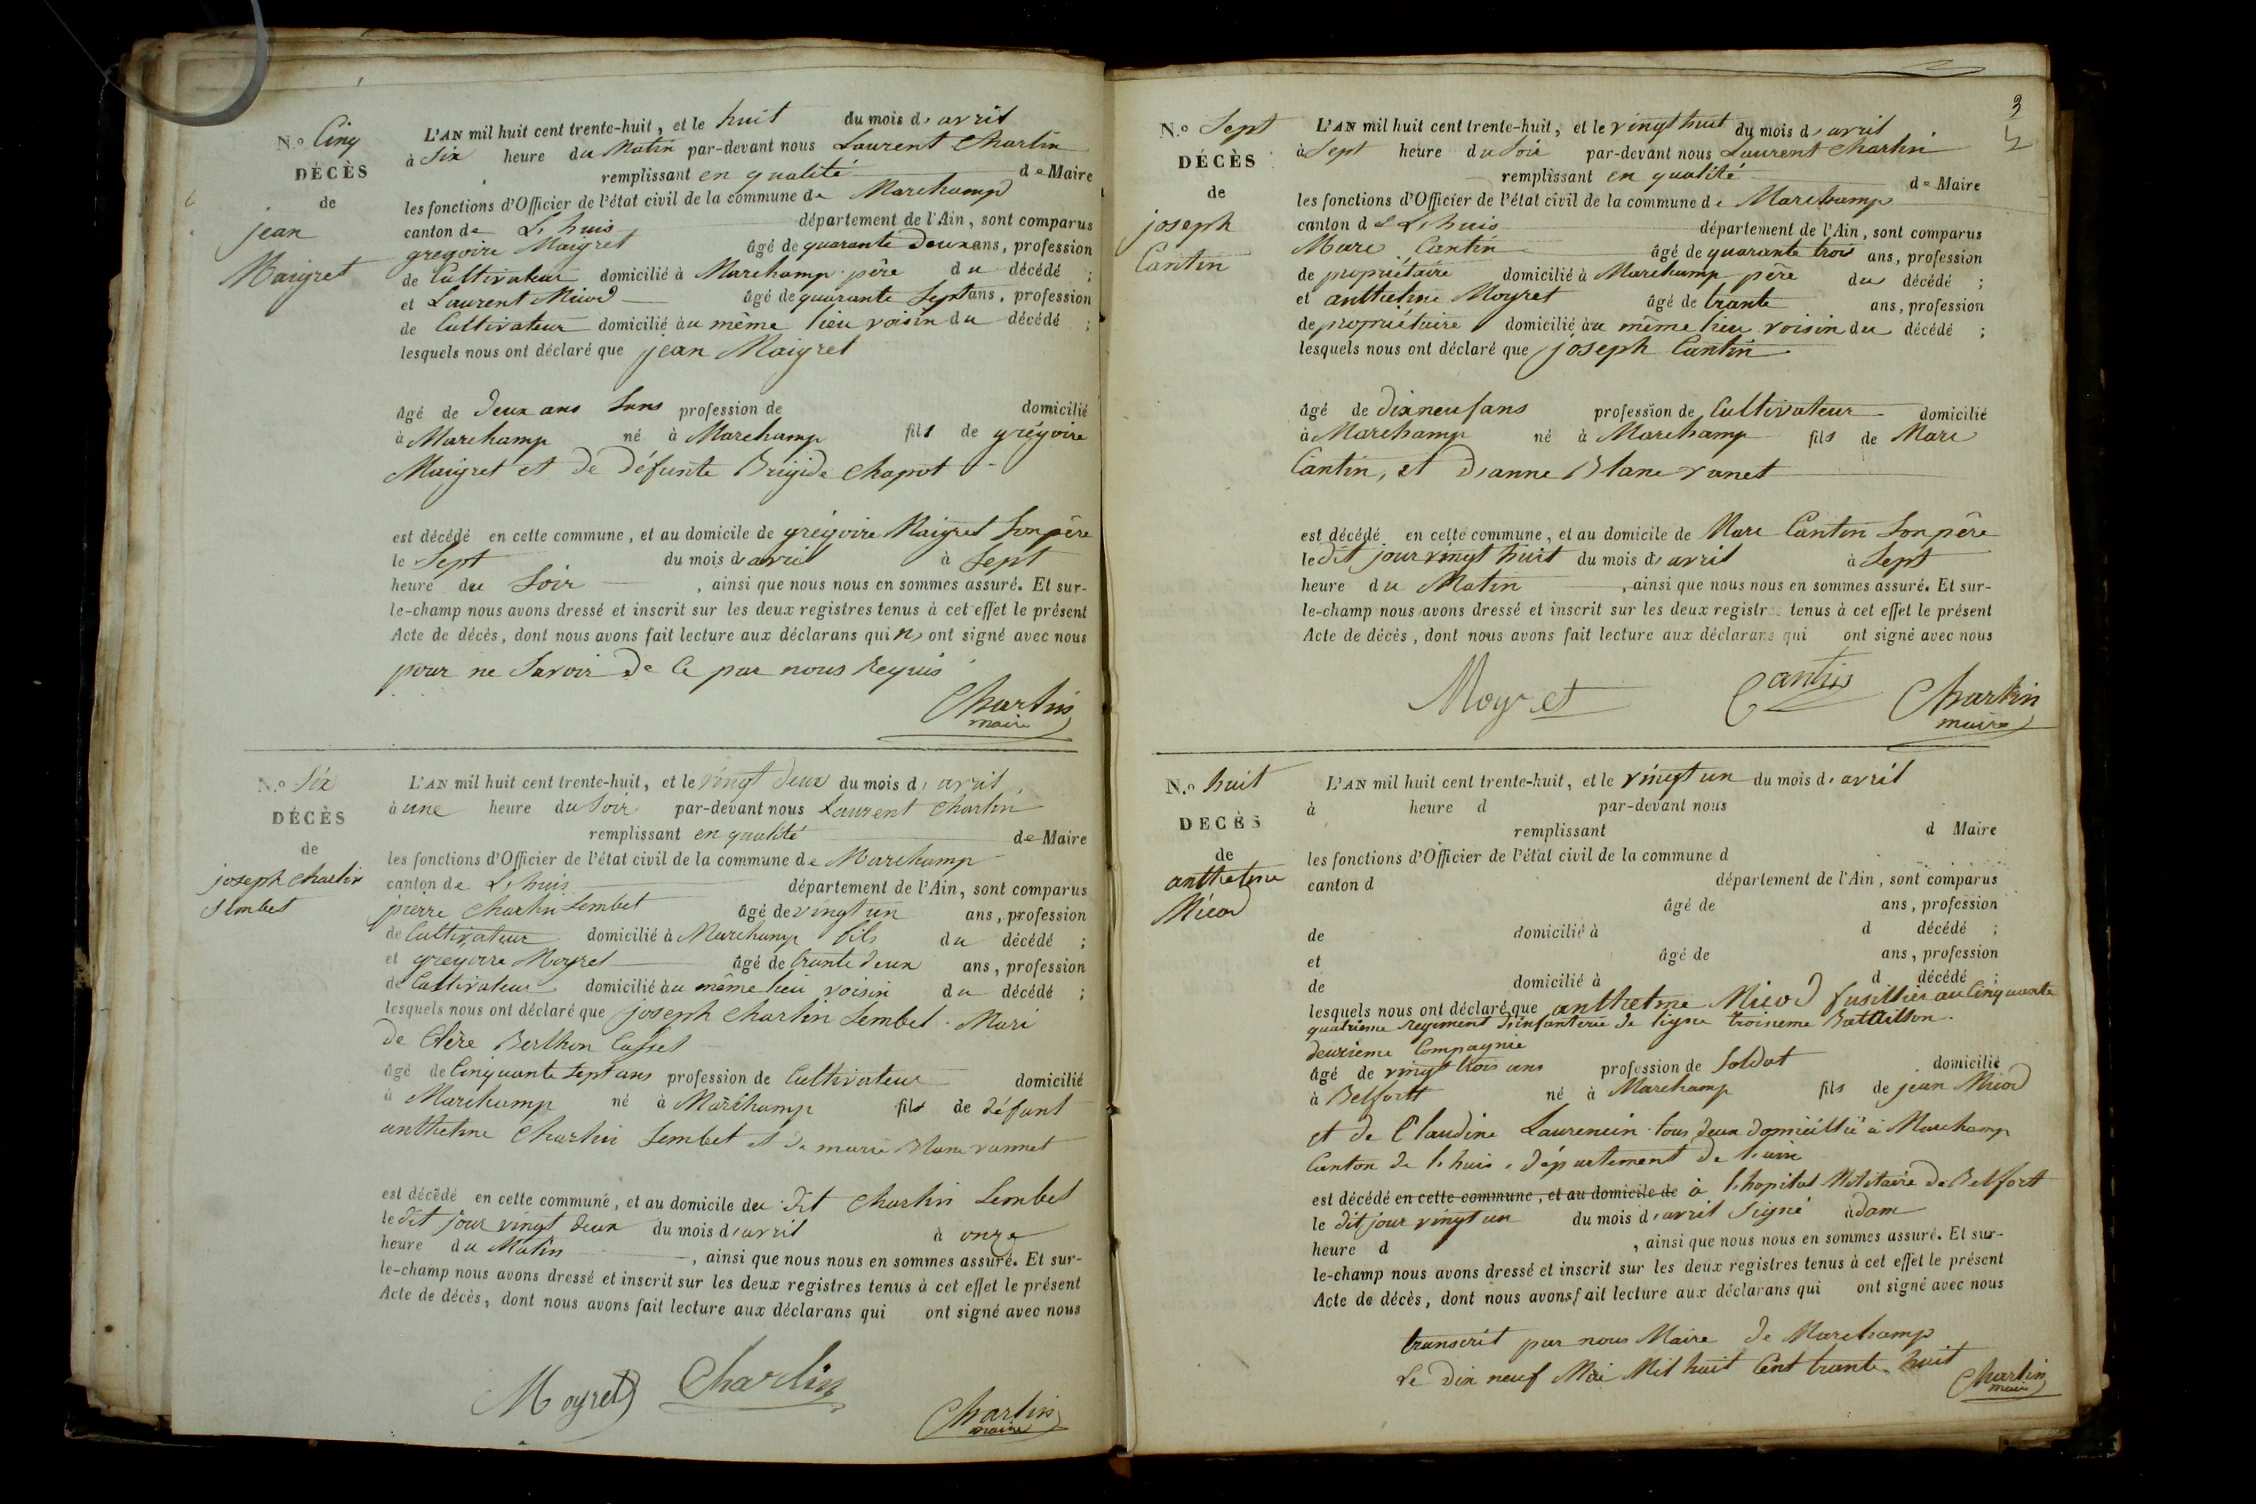 N.o Cinq
DÉCÈS
de
jean
Maigret
L'AN mil huit cent trente-huit, et le huit du mois d'avril
à Six heure du Matin par-devant nous Laurent Charlin
remplissant en qualité de Maire
les fonctions d'Officier de l'état civil de la commune de Marchamp
canton de L'huis département de l'Ain, sont comparus
gregoire Maigret âgé de quarante Deux ans, profession
de Cultivateur domicilié à Marchamp père du décédé ;
et Laurent Micod âgé de quarante Sept ans, profession
de Cultivateur domicilié au même lieu voisin du décédé ;
lesquels nous ont déclaré que jean Maigret
âgé de deux ans Sans profession de domicilié
à Marchamp né à Marchamp fils de grégoire
Maigret et de défunte Brigide Chapot
est décédé en cette commune, et au domicile de grégoire Maigret Son père
le Sept du mois d'avril à Sept
heure du Soir , ainsi que nous nous en sommes assuré. Et sur-
le-champ nous avons dressé et inscrit sur les deux registres tenus à cet effet le présent
Acte de décès, dont nous avons fait lecture aux déclarans qui n'ont signé avec nous
pour ne Savoir de Ce par nous Requis
Charlin
maire
N.o Six
DÉCÈS
de
joseph Charlin
Lembet
L'AN mil huit cent trente-huit, et le vingt deux du mois d'avril
à une heure du Soir par-devant nous Laurent Charlin
remplissant en qualité de Maire
les fonctions d'Officier de l'état civil de la commune de Marchamp
canton de L'huis département de l'Ain, sont comparus
pierre Charlin Lembet âgé de vingt un ans, profession
de Cultivateur domicilié à Marchamp fils du décédé ;
et gregoire Moyret âgé de trante deux ans, profession
de Cultivateur domicilié au même lieu voisin du décédé ;
lesquels nous ont déclaré que joseph Charlin Lembet Mari
de Clère Berthon
âgé de Cinquante Sept ans profession de Cultivateur domicilié
à Marchamp né à Marchamp fils de défunt
anthelme Charlin Lembet et de marie Blanc vannet
est décédé en cette commune, et au domicile du dit Charlin Lembet
le dit jour vingt deux du mois d'avril à onze
heure du Matin , ainsi que nous nous en sommes assuré. Et sur-
le-champ nous avons dressé et inscrit sur les deux registres tenus à cet effet le présent
Acte de décès, dont nous avons fait lecture aux déclarans qui ont signé avec nous
Moyret Charlin
Charlin
maire
3
N.o Sept
DÉCÈS
de
joseph
Cantin
L'AN mil huit cent trente-huit, et le vingt huit du mois d'avril
à Sept heure du Soir par-devant nous Laurent Charlin
remplissant en qualité de Maire
les fonctions d'Officier de l'état civil de la commune de Marchamp
canton de L'huis département de l'Ain, sont comparus
Marc Cantin âgé de quarante trois ans, profession
de propriétaire domicilié à Marchamp père du décédé ;
et anthelme Moyret âgé de trante ans, profession
de propriétaire domicilié au même lieu voisin du décédé ;
lesquels nous ont déclaré que joseph Cantin
âgé de dix neuf ans profession de Cultivateur domicilié
à Marchamp né à Marchamp fils de Marc
Cantin, et d'anne Blanc vanet
est décédé en cette commune, et au domicile de Marc Cantin Son père
le dit jour vingt huit du mois d'avril à Sept
heure du Matin , ainsi que nous nous en sommes assuré. Et sur-
le-champ nous avons dressé et inscrit sur les deux registres tenus à cet effet le présent
Acte de décès, dont nous avons fait lecture aux déclarans qui ont signé avec nous
Moyret Cantin Charlin
maire
N.o huit
DÉCÈS
de
anthelme
Micod
L'AN mil huit cent trente-huit, et le vingt un du mois d'avril
à heure d par-devant nous
remplissant d Maire
les fonctions d'Officier de l'état civil de la commune d
canton d département de l'Ain, sont comparus
âgé de ans, profession
de domicilié à d décédé ;
et âgé de ans, profession
de domicilié à d décédé ;
lesquels nous ont déclaré que anthelme Micod fusillier au Cinquante
quatrième régiment d'infanterie de ligne troisieme Bataillon
deuxieme Compagnie
âgé de vingt trois ans profession de Soldat domicilié
à Belfortt né à Marchamp fils de jean Micod
et de Claudine Laurencin tous deux domicillié à Marchamp
Canton de l'huis, département de l'ain
est décédé en cette commune, et au domicile de à l'hopital Militaire de Belfort
le dit jour vingt un du mois d'avril Signé adam
heure d , ainsi que nous nous en sommes assuré. Et sur-
le-champ nous avons dressé et inscrit sur les deux registres tenus à cet effet le présent
Acte de décès, dont nous avons fait lecture aux déclarans qui ont signé avec nous
transcrit par nous Maire de Marchamp
Le Dix neuf Mai Mil huit Cent trante huit
Charlin
maire